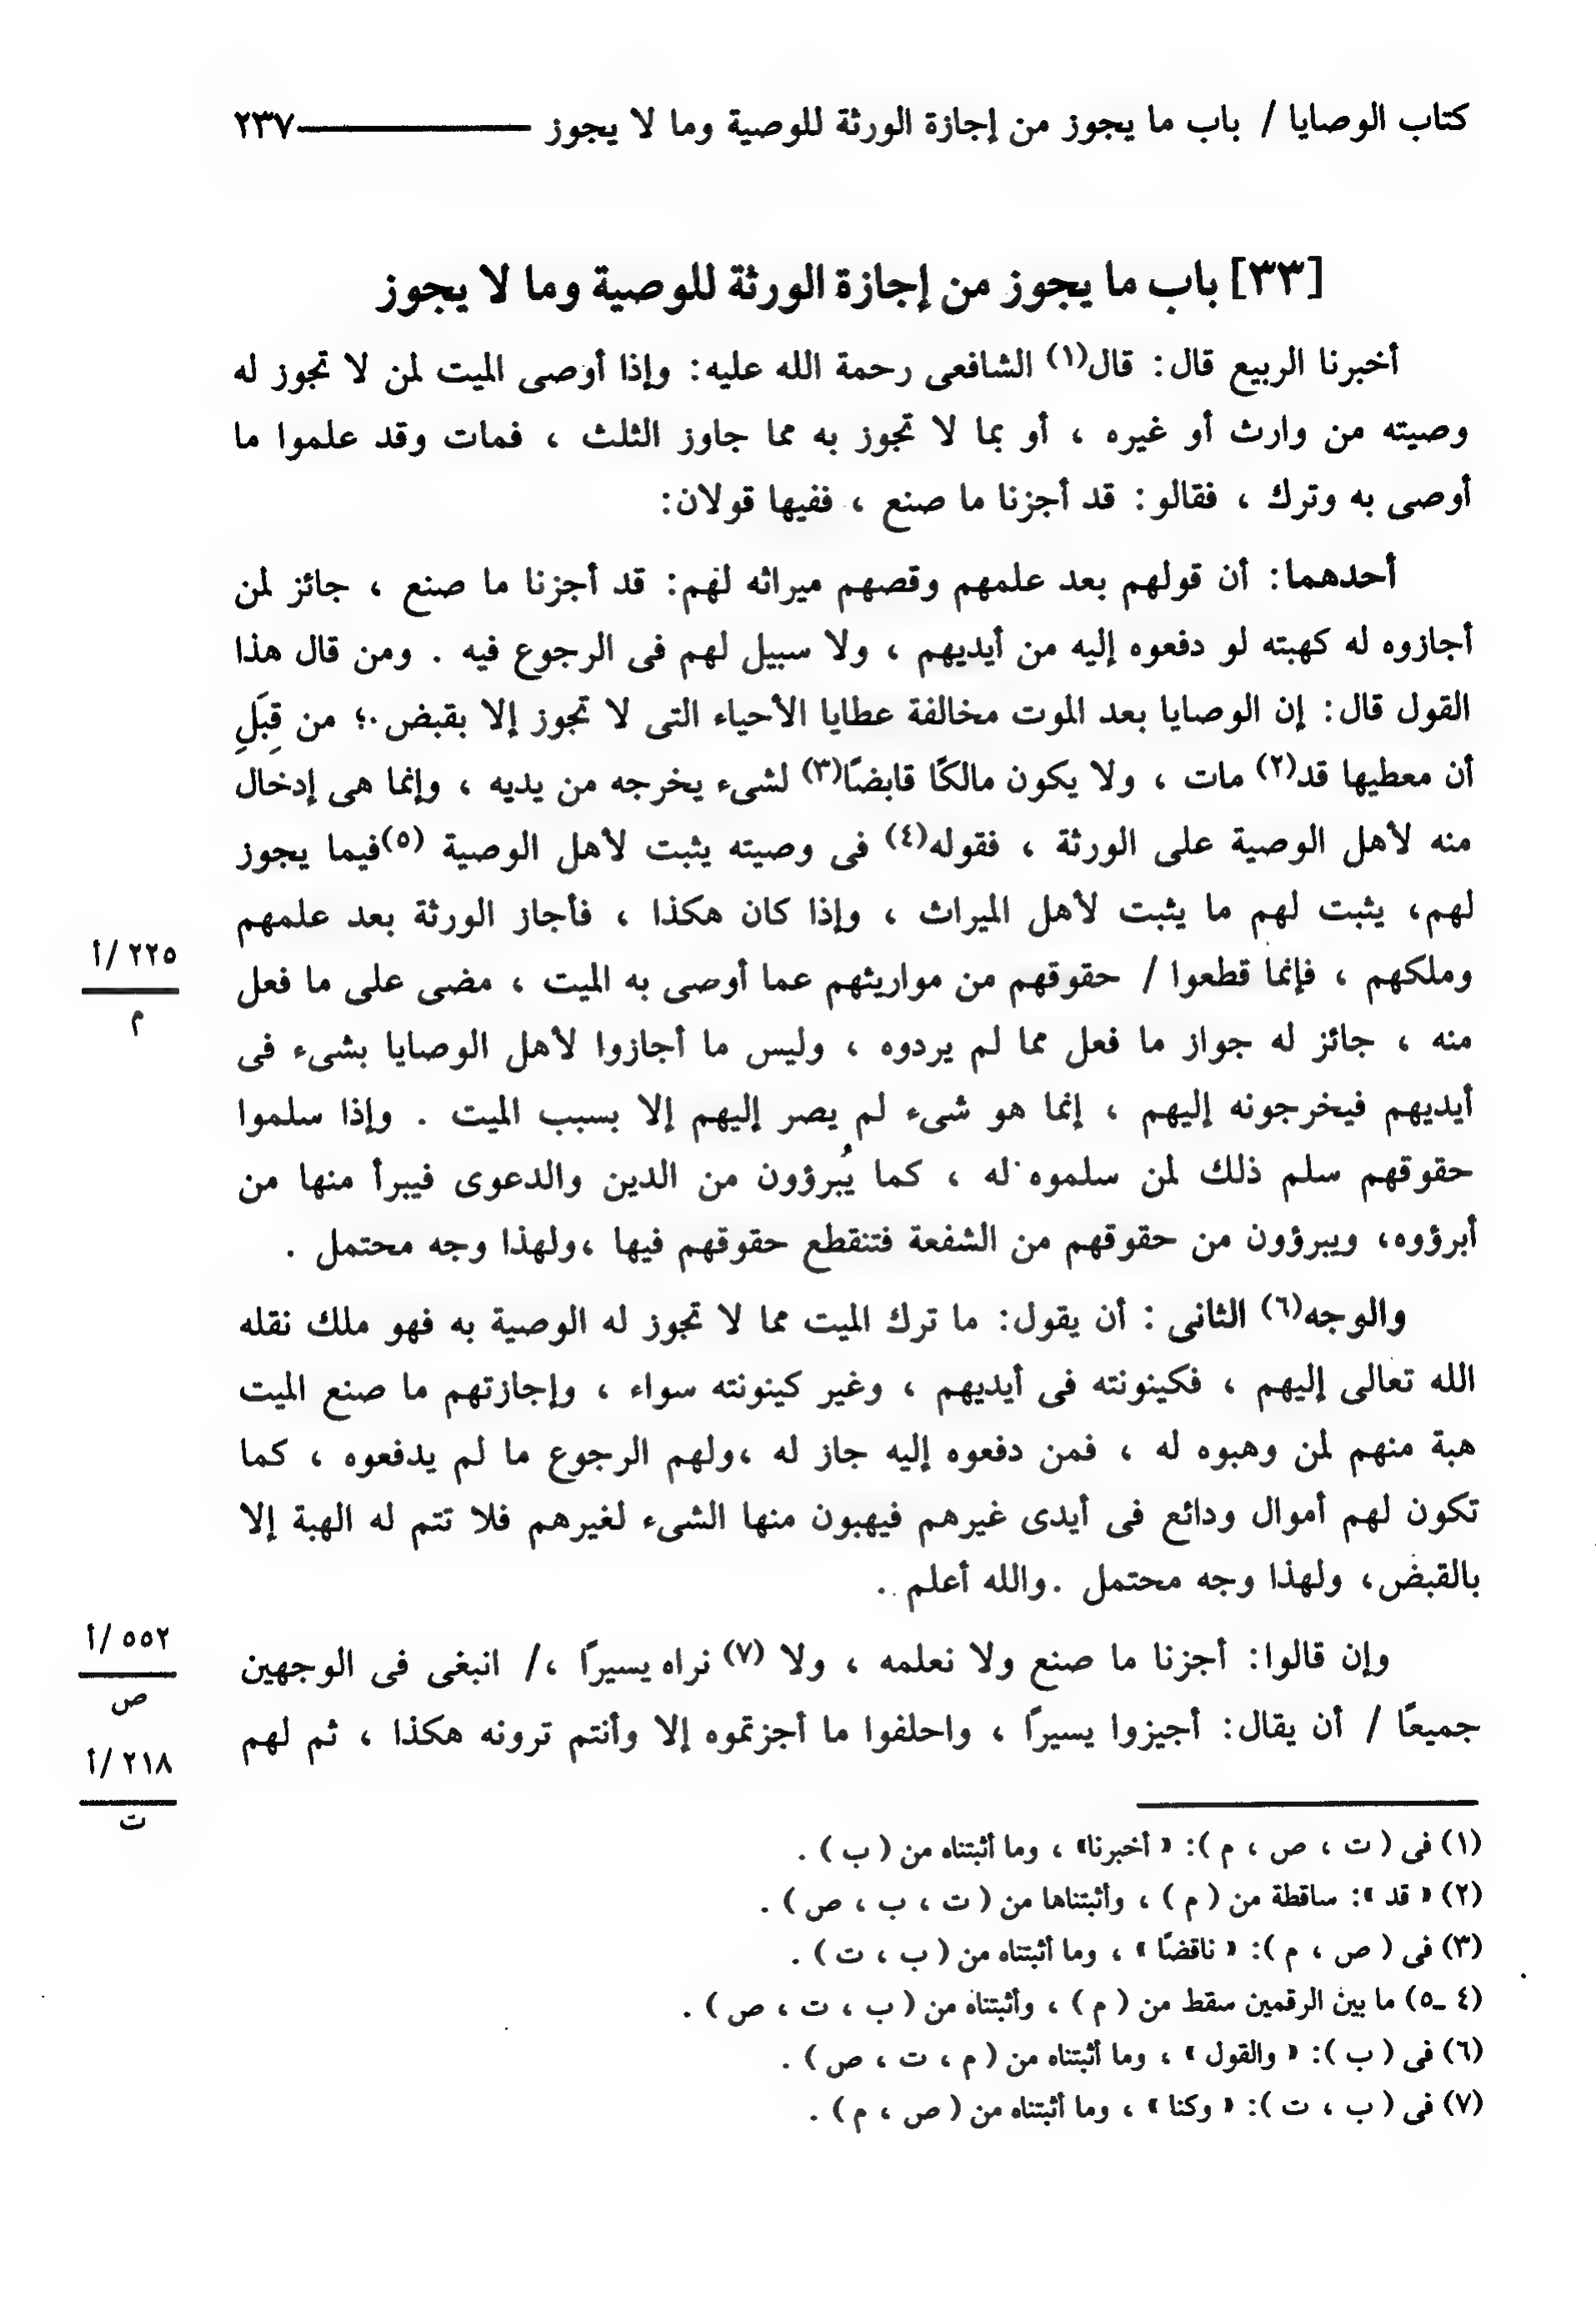 كتاب الوصايا / باب ما يجوز من إجازة الورثة للوصية وما لا يجوز ـــــــــــــ ٢٣٧
[٣٣] باب ما يجوز من إجازة الورثة للوصية وما لا يجوز
أخبرنا الربيع قال: قال(١) الشافعى رحمة الله عليه: وإذا أوصى الميت لمن لا تجوز له
وصيته من وارث أو غيره ، أو بما لا تجوز به مما جاوز الثلث ، فمات وقد علموا ما
أوصى به وترك ، فقالو: قد أجزنا ما صنع ، ففيها قولان:
أحدهما: أن قولهم بعد علمهم وقصهم ميراثه لهم: قد أجزنا ما صنع ، جائز لمن
أجازوه له كهبته لو دفعوه إليه من أيديهم ، ولا سبيل لهم فى الرجوع فيه . ومن قال هذا
القول قال: إن الوصايا بعد الموت مخالفة عطايا الأحياء التى لا تجوز إلا بقبض ؛ من قِبَلِ
أن معطيها قد(٢) مات ، ولا يكون مالكًا قابضًا(٣) لشىء يخرجه من يديه ، وإنما هى إدخال
منه لأهل الوصية على الورثة ، فقوله(٤) فى وصيته يثبت لأهل الوصية (٥)فيما يجوز
لهم، يثبت لهم ما يثبت لأهل الميراث ، وإذا كان هكذا ، فأجاز الورثة بعد علمهم
وملكهم ، فإنما قطعوا / حقوقهم من مواريثهم عما أوصى به الميت ، مضى على ما فعل
٢٢٥ /أ
م
منه ، جائز له جواز ما فعل مما لم يردوه ، وليس ما أجازوا لأهل الوصايا بشىء فى
أيديهم فيخرجونه إليهم ، إنما هو شىء لم يصر إليهم إلا بسبب الميت . وإذا سلموا
حقوقهم سلم ذلك لمن سلموه له ، كما يُبرؤون من الدين والدعوى فيبرأ منها من
أبرؤوه، ويبرؤون من حقوقهم من الشفعة فتنقطع حقوقهم فيها ،ولهذا وجه محتمل .
والوجه(٦) الثانى : أن يقول: ما ترك الميت مما لا تجوز له الوصية به فهو ملك نقله
الله تعالى إليهم ، فكينونته فى أيديهم ، وغير كينونته سواء ، وإجازتهم ما صنع الميت
هبة منهم لمن وهبوه له ، فمن دفعوه إليه جاز له ،ولهم الرجوع ما لم يدفعوه ، كما
تكون لهم أموال ودائع فى أيدى غيرهم فيهبون منها الشىء لغيرهم فلا تتم له الهبة إلا
بالقبض، ولهذا وجه محتمل .والله أعلم .
وإن قالوا: أجزنا ما صنع ولا نعلمه ، ولا (٧) نراه يسيرًا ،/ انبغى فى الوجهين
٥٥٢ /أ
ص
جميعًا / أن يقال: أجيزوا يسيرًا ، واحلفوا ما أجزتموه إلا وأنتم ترونه هكذا ، ثم لهم
٢١٨ /أ
ت
(١) فى ( ت ، ص ، م ): « أخبرنا» ، وما أثبتناه من ( ب ) .
(٢) « قد »: ساقطة من ( م ) ، وأثبتناها من ( ت ، ب ، ص ) .
(٣) فى ( ص ، م ): « ناقضًا » ، وما أثبتناه من ( ب ، ت ) .
(٤ ـ٥) ما بين الرقمين سقط من ( م ) ، وأثبتناه من ( ب ، ت ، ص ) .
(٦) فى ( ب ): « والقول » ، وما أثبتناه من ( م ، ت ، ص ) .
(٧) فى ( ب ، ت ): « وكنا » ، وما أثبتناه من ( ص ، م ) .